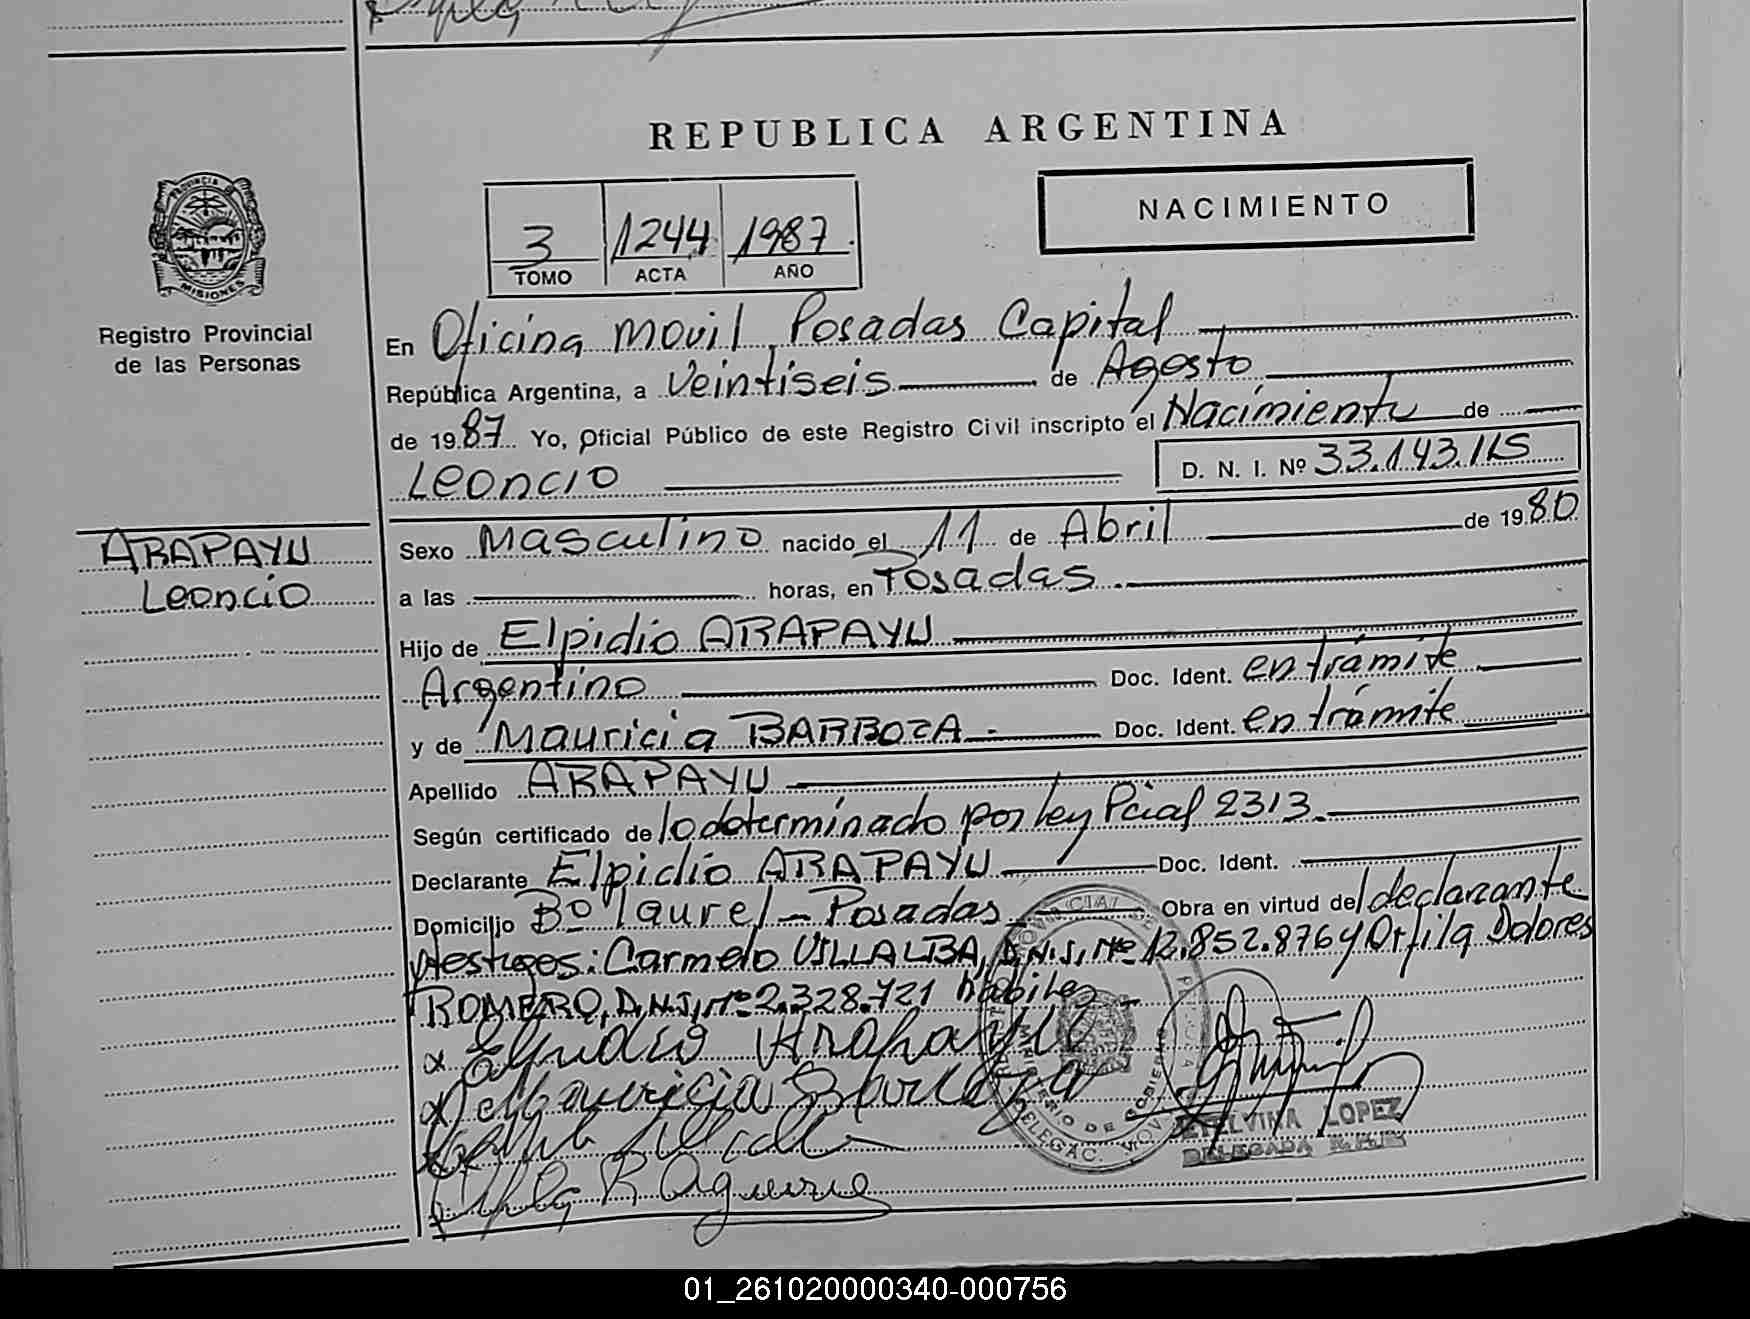 REPUBLICA ARGENTINA
PROVINCIA
MISIONES
Registro Provincial
de las Personas
3 1244 1987
TOMO ACTA AÑO
NACIMIENTO
En Oficina Movil Posadas Capital
República Argentina, a Veintiseis de Agosto
de 1987 Yo, Oficial Público de este Registro Civil inscripto el Nacimiento de
Leoncio
D. N. I. Nº 33.143.115
ARAPAYU
Leoncio
Sexo Masculino nacido el 11 de Abril de 1980
a las horas, en Posadas
Hijo de Elpidio ARAPAYU
Argentino Doc. Ident. en trámite
y de Mauricia BARBOZA.- Doc. Ident. en trámite
Apellido ARAPAYU
Según certificado de lo determinado por Ley Pcial 2313.
Declarante Elpidio ARAPAYU Doc. Ident.
Domicilio Bº laurel - Posadas Obra en virtud del declarante
testigos: Carmelo VILLALBA, D.N.I, Nº 12.852.876 y Orfila Dolores
ROMERO, D.N.I, Nº 2.328.721 habiles
x Elpidio Arapayu
x Mauricia Barboza
MINISTERIO DE GOBIERNO
DELEGAC. MOV
ETELVINA LOPEZ
DELEGADA R.P.P.
01_261020000340-000756